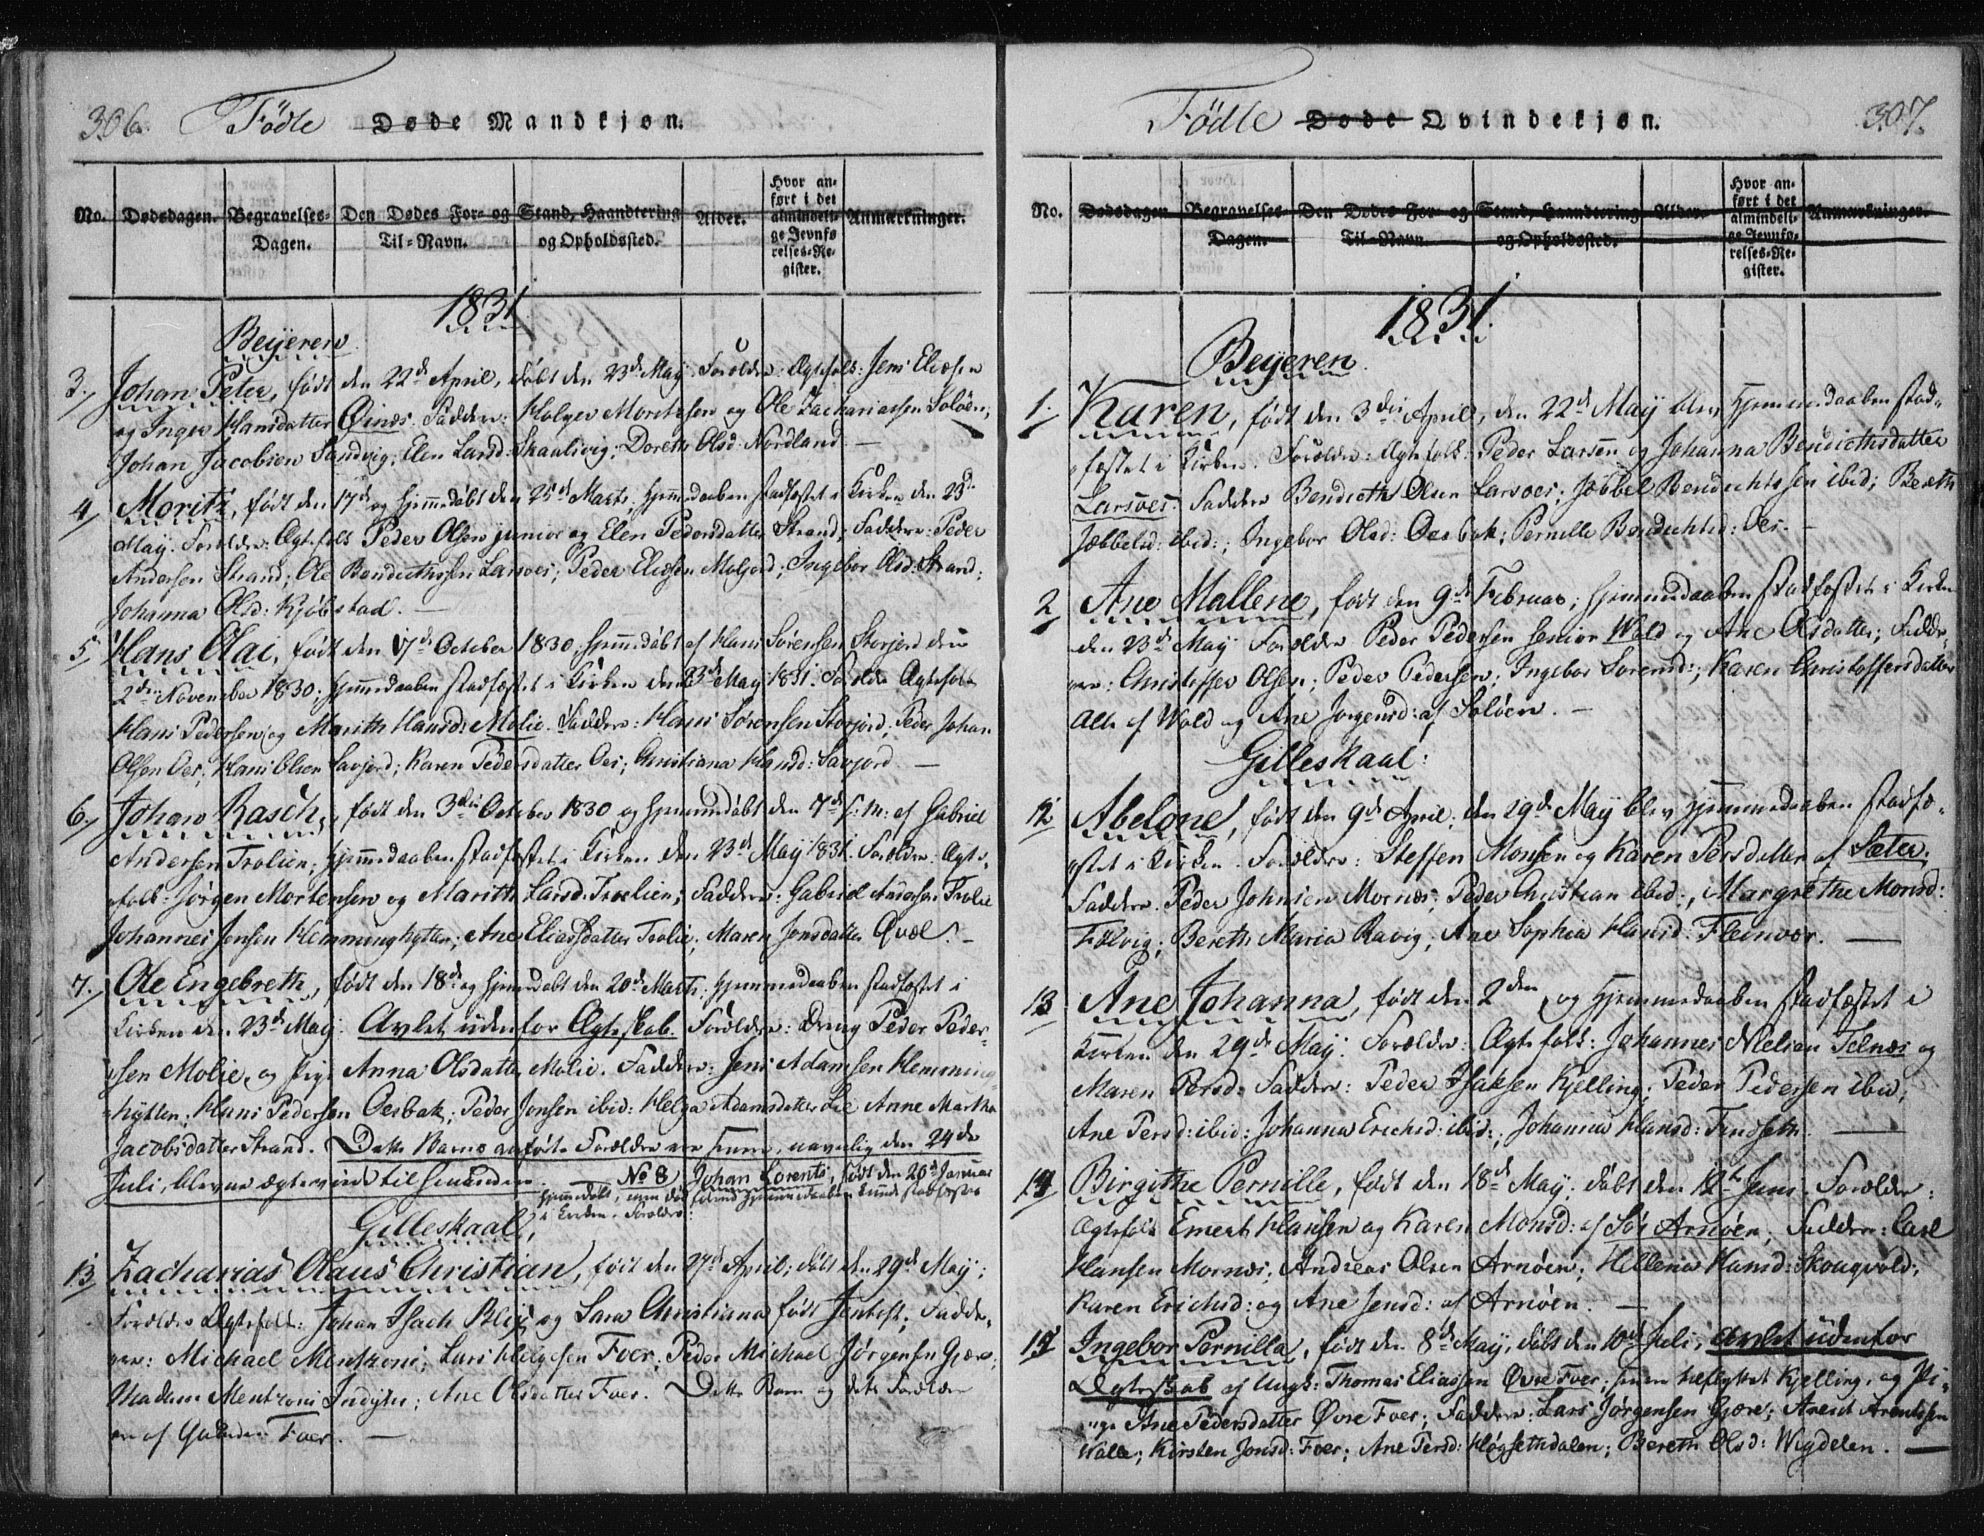 306. Födte Døde Mandkjøn.
No. Dødsdagen. Begravelses-Dagen. Den Dødes For- og Til-Navn. Stand, Haandtering og Opholdssted. Alder. Hvor anført i det almindelige Jevnførelses-Register. Anmærkninger.
1831
Beyeren
3. Johan Peter, født den 22de April, døbt den 23de May. Forældre: Ægtefolk: Jens Eliæsen
og Inger Hansdatter Øinæs. Faddere: Holger Moritzsen og Ole Zachariassen Soløen;
Johan Jacobsen Sandvig; Elen Larsd: Skaalsvig; Doreth Olsd: Nordland. —
4. Moritz, født den 17de og hjemmedøbt den 25de Marts; hjemmedaaben stadfæstet i Kirken den 23de
May. Forældre: Ægtefolk Peder Olsen junior og Elen Pedersdatter Strand; Faddere: Peder
Andersen Strand; Ole Bendicthsen Larsoes; Peder Eliesen Moljord; Ingebor Olsd: Strand;
Johanna Olsd: Kjøbstad. —
5. Hans Olai, født den 17de October 1830, hjemmedøbt af Hans Sørensen Storjord den
2den November 1830. hjemmedaaben stadfæstet i Kirken den 23de May 1831. Forældre Ægtefolk
Hans Pedersen og Marith Hansd: Molie. Faddere: Hans Sørensen Storjord; Peder Johan
Olsen Oes; Hans Olsen Savjord; Karen Pedersdatter Oes; Christiana Hansd: Savjord. —
6. Johan Rasch, født den 3die October 1830 og hjemmedøbt den 7de s: m: af Gabriel
Andersen Trolien; hjemmedaaben stadfæstet i Kirken den 23de May 1831. Forældre: Ægte-
folk: Jørgen Mortensen og Marith Larsd: Trolien; Faddere: Gabriel Andersen Trolie
Johannes Jensen Hemminghytten; Ane Eliasdatter Trolie; Maren Jonsdatter Qvæl. —
7. Ole Engebreth, født den 18de og hjemmedøbt den 20de Marts. hjemmedaaben stadfæstet i
Kirken den 23de May. Avlet udenfor Ægteskab. Forældre: Dreng Peder Peder-
sen Molie, og Pige Anna Olsdatter Molie. Faddere: Jens Adamsen Hemming-
hytten; Hans Pedersen Oesbak; Peder Jonsen ibid: Helga Adamsdatter Lie Anne Martha
Jacobsdatter Strand. Dette Barns anførte Forældre ere siden, navnlig den 24de
Juli, blevne ægteviede til hinanden. No 8 Johan Lorents, født den 26de Januar
hjemmedøbt, men døde
i Kirken. Forældre:
Gilleskaal,
13 Zacharias Olaus Christian, født den 27de April; døbt den 29de May;
Forældre Ægtefolk: Johan Isach Blix og Sara Christiana født Jentoft; Fadde-
re: Michael Mentzoni; Lars Helgesen Foer; Peder Michael Jørgensen Gjære;
Madam Mentzoni Indyhr; Ane Olsdatter Foer. Dette Barn og dets Forældre
ere af Gaarden Foer. —
Födte Døde Qvindekjøn. 307.
No. Dødsdagen Begravelses-Dagen. Den Dødes For- og Til-Navn. Stand, Haandtering og Opholdssted. Alder. Hvor anført i det almindelige Jevnførelses-Register. Anmærkninger.
1831.
Beyeren.
1. Karen, født den 3die April, den 22de May blev hjemmedaaben stad-
fæstet i Kirken. Forældre: Ægtefolk: Peder Larsen og Johanna Bendicthsdatter
Larsoes. Faddere Bendicth Olsen Larsoes; Jebbel Bendichtssen ibid; Bereth
Jebbelsd: ibid:; Ingebor Olsd: Oesbak; Pernille Bendichtsd: Oes. —
2 Ane Mallene, født den 9de Februar; hjemmedaaben stadfæstet i Kirken
den 23de May Forældre Peder Pedersen senior Wold og Ane Olsdatter; Fadde-
re: Christoffer Olsen; Peder Pedersen; Ingebor Sørensd:; Karen Christoffersdatter
Alle af Wold og Ane Jørgensd: af Soløen. —
Gilleskaal:
12 Abelone, født den 9de April; den 29de May blev hjemmedaaben stadfæ-
stet i Kirken. Forældre: Steffen Monsen og Karen Persdatter af Sæter.
Faddere. Peder Johnsen Mornæs; Peder Christian ibid:, Margrethe Monsd:
Følvig; Bereth Maria Ravig; Ane Sophia Hansd: Fleinvær. —
13 Ane Johanna, født den 2den og hjemmedaaben stadfæstet i
Kirken den 29de May. Forældre: Ægtefolk: Johannes Nielsen Telnæs og
Maren Persd: Faddere: Peder Isaksen Kjelling; Peder Pedersen ibid;
Ane Persd: ibid: Johanna Erichsd: ibid:; Johanna Hansd: Findseth. —
14 Birgithe Pernille, født den 18de May; døbt den 12te Juni. Forældre:
Ægtefolk Ement Hansen og Karen Monsd: af Sør Arnøen; Faddere: Carl
Hansen Mornæs; Andreas Olsen Arnøen; Hellena Hansd: Skougvold;
Karen Erichsd: og Ane Jensd: af Arnøen. —
15 Ingebor Pernilla, født den 8de May, døbt den 10de Juli; avlet udenfor
Ægteskab af Ungk: Thomas Eliassen Øvre Foer; siden tilflyttet Kjelling, og Pi-
ge Ane Pedersdatter Øvre Foer; Faddere: Lars Jørgensen Gjære; Arent Arentsen
Valle; Kirsten Jonsd: Foer; Ane Persd: Høgsethdalen; Bereth Olsd: Wigdelen. —